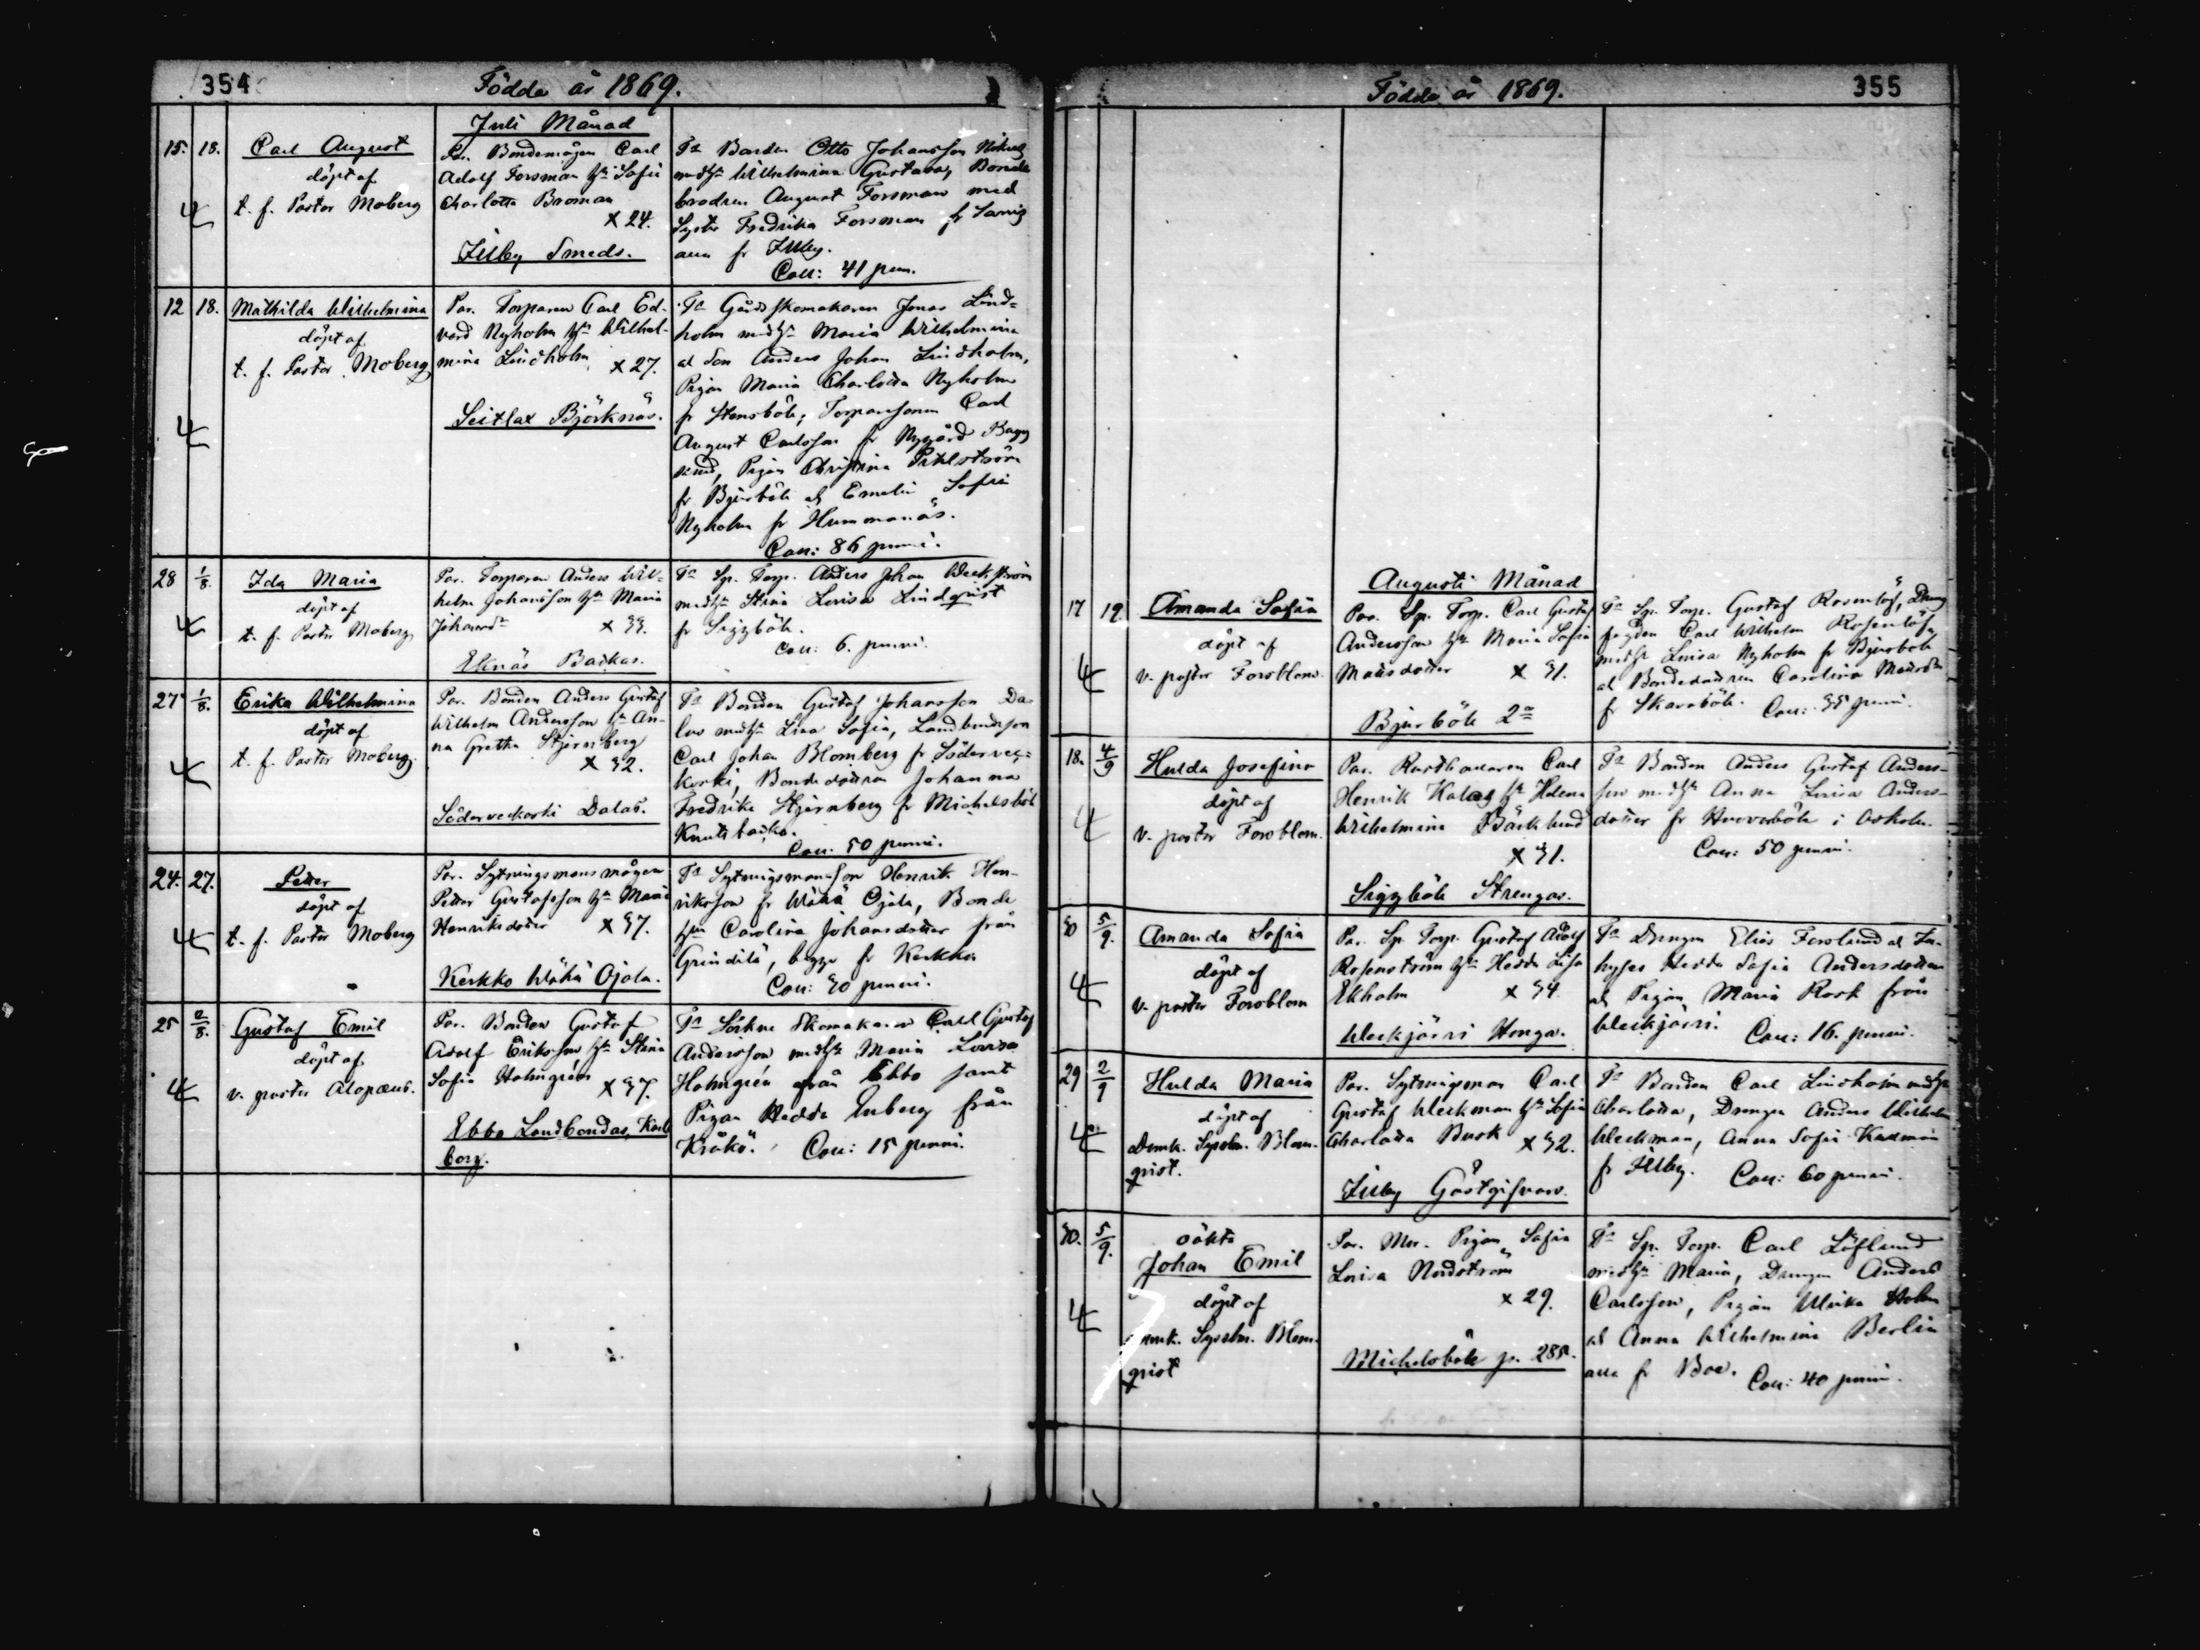 354
Födda år 1869.
Juli Månad
15. 18. Carl August
döpt af
t. f. Pastor Moberg
Par. Bondemågen Carl
Adolf Forsman h:n Sofia
Charlotta Broman
x 24.
Illby Smeds.
Fa Bonden Otto Johansson
medh: Wilhelmina Gustava, Bonde
brodren August Forsman med
Syster Fredrika Forsman
alla fr Illby.
Coll: 41 penni.
12 18. Mathilda Wilhelmina
döpt af
t. f. Pastor Moberg
Par. Torparen Carl Ed-
vard Nyholm h:n Wilhel-
mina Lindholm x 27.
Seitlax Björknäs.
Fa Gårdsskomakaren Jonas Lind-
holm medh: Maria Wilhelmina
al Son Anders Johan Lindholm,
Pigan Maria Charlotta Nyholm
fr Stensböle, Torparesonen Carl
August Carlsson fr Nygård
Pigan Christina Pihlström
fr Bjurböle al Emelie Sofia
Nyholm fr Hummanäs.
Coll: 86 penni.
28 1/8. Ida Maria
döpt af
t. f. Pastor Moberg
Par. Torparen Anders Wil-
helm Johansson h:n Maria
Johansd:r x 33.
Eknäs Backas.
Fa Sp. Torp. Anders Johan Weckström
medh: Stina Lovisa Lindqvist
fr Siggböle.
Coll: 6. penni.
27 1/8. Erika Wilhelmina
döpt af
t. f. Pastor Moberg.
Par. Bonden Anders Gustaf
Wilhelm Andersson h:n An-
na Gretha Stjernberg
x 32.
Söderveckoski Dalas.
Fa Bonden Gustaf Johansson Da-
las medh: Lisa Sofia, Landbondeson
Carl Johan Blomberg fr Södervec-
koski, Bondedottren Johanna
Fredrika Stjernberg fr Michelsböle
Knutsbacka.
Coll: 50 penni.
24. 27. Petter
döpt af
t. f. Pastor Moberg
Par. Sytningsmans mågen
Petter Gustafsson h:n Maria
Henriksdotter x 37.
Kerkko Wähä Ojala.
Fa Sytningsmanson Henrik Hen-
riksson fr Wähä Ojala, Bonde
h:n Carolina Johansdotter från
Grindilä, begge fr Kerkko.
Coll: 30 penni.
25 2/8. Gustaf Emil
döpt af
v. pastor Alopæus.
Par. Bonden Gustaf
Adolf Eriksson h:n Stina
Sofia Holmgrén x 37.
Ebbo Landbondas, Karl
borg.
Fa Sockne Skomakaren Carl Gustaf
Andersson medh: Maria Lovisa
Holmgrén från Ebbo samt
Pigan Hedda Enberg från
Kråkö. Coll: 15 penni.
355
Födda år 1869.
Augusti Månad
17 19. Amanda Sofia
döpt af
v. pastor Forsblom
Par. Sp. Torp. Carl Gustaf
Andersson h:n Maria Sofia
Matsdotter x 31.
Bjurböle 2a
Fa Sp. Torp. Gustaf Rosenlöf, Dreng
Carl Wilhelm Rosenlöf
medh: Lovisa Nyholm fr Bjurböle
al Bondedottren Carolina
fr Skavaböle. Coll: 35 penni.
18. 4/9 Hulda Josefina
döpt af
v. pastor Forsblom.
Par. Rusthållaren Carl
Henrik h:n Helena
Wilhelmina Bäcklund
x 31.
Siggböle Strengas.
Fa Bonden Anders Gustaf Anders-
son medh: Anna Lovisa Anders-
dotter fr i Askola.
Coll: 50 penni.
30 5/9. Amanda Sofia
döpt af
v. pastor Forsblom
Par. Sp. Torp. Gustaf Adolf
Rosenström h:n Hedda Lisa
Ekholm x 34
Weckjärvi Honga.
Fa Drengen Elias Forslund al In-
hyses Hedda Sofia Andersdotter
al Pigan Maria Rosk från
Weckjärvi. Coll: 16. penni.
29 2/9 Hulda Maria
döpt af
Domk. Sysslm. Blom-
qvist.
Par. Sytningsman Carl
Gustaf Weckman h:n Sofia
Charlotta Busk x 32.
Illby Gästgifvars.
Fa Bonden Carl Lindholm medh:
Charlotta, Drengen Anders Wilhelm
Weckman, Anna Sofia
fr Illby. Coll: 60 penni.
30. 5/9. oäkta
Johan Emil
döpt af
Domk. Sysslm. Blom-
qvist
Par. Mor. Pigan Sofia
Lovisa Nordström
x 29.
Michelsböle p. 285.
Fa Sp. Torp. Carl Löflund
medh: Maria, Drengen Anders
Carlsson, Pigan Ulrika Holm
al Anna Wilhelmina Berlin
alla fr Boe. Coll: 40 penni.